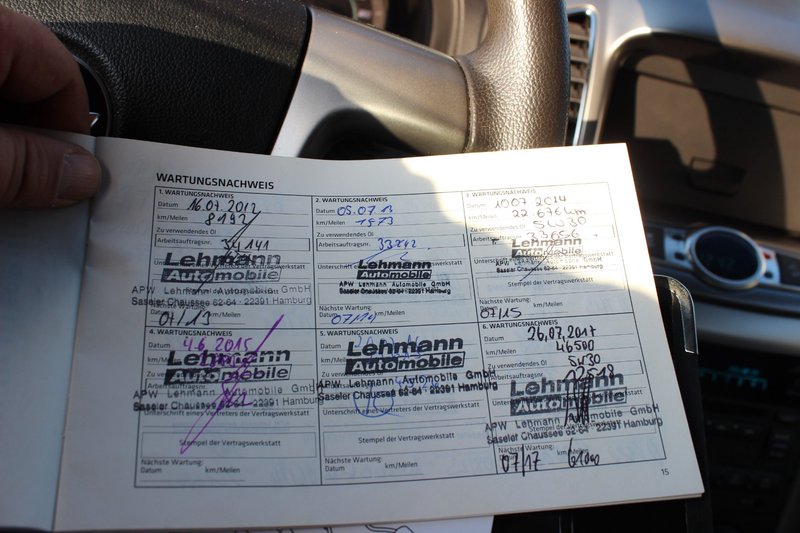 WARTUNGSNACHWEIS
1. WARTUNGSNACHWEIS
Datum 16.07.2012
km/Meilen 8192
Zu verwendendes Öl
Arbeitsauftragsnr. 34141
Lehmann
Automobile
APW Lehmann Automobile GmbH
Saseler Chaussee 62-64 · 22391 Hamburg
Nächste Wartung:
Datum km/Meilen
07/13
2. WARTUNGSNACHWEIS
Datum 05.07.13
km/Meilen
Zu verwendendes Öl
Arbeitsauftragsnr.
Lehmann
Automobile
APW Lehmann Automobile GmbH
Saseler Chaussee 62-64 · 22391 Hamburg
Nächste Wartung:
Datum km/Meilen
07/14
3. WARTUNGSNACHWEIS
Datum 10.07.2014
km/Meilen 22 676 km
Zu verwendendes Öl 5W30
Arbeitsauftragsnr.
Lehmann
Automobile
Saseler Chaussee 62-64 · 22391 Hamburg
Stempel der Vertragswerkstatt
Nächste Wartung:
Datum km/Meilen
07/15
4. WARTUNGSNACHWEIS
Datum 4.6.2015
km/Meilen
Lehmann
Automobile
APW Lehmann Automobile GmbH
Saseler Chaussee 62-64 · 22391 Hamburg
Unterschrift eines Vertreters der Vertragswerkstatt
Stempel der Vertragswerkstatt
Nächste Wartung:
Datum km/Meilen
5. WARTUNGSNACHWEIS
Datum
Lehmann
Automobile
APW Lehmann Automobile GmbH
Saseler Chaussee 62-64 · 22391 Hamburg
Unterschrift eines Vertreters der Vertragswerkstatt
Stempel der Vertragswerkstatt
Nächste Wartung:
Datum km/Meilen
6. WARTUNGSNACHWEIS
Datum 26.07.2017
km/Meilen 46500
Zu verwendendes Öl 5W30
Arbeitsauftragsnr.
Lehmann
Automobile
APW Lehmann Automobile GmbH
Saseler Chaussee 62-64 · 22391 Hamburg
Nächste Wartung:
Datum km/Meilen
07/17 61000
15